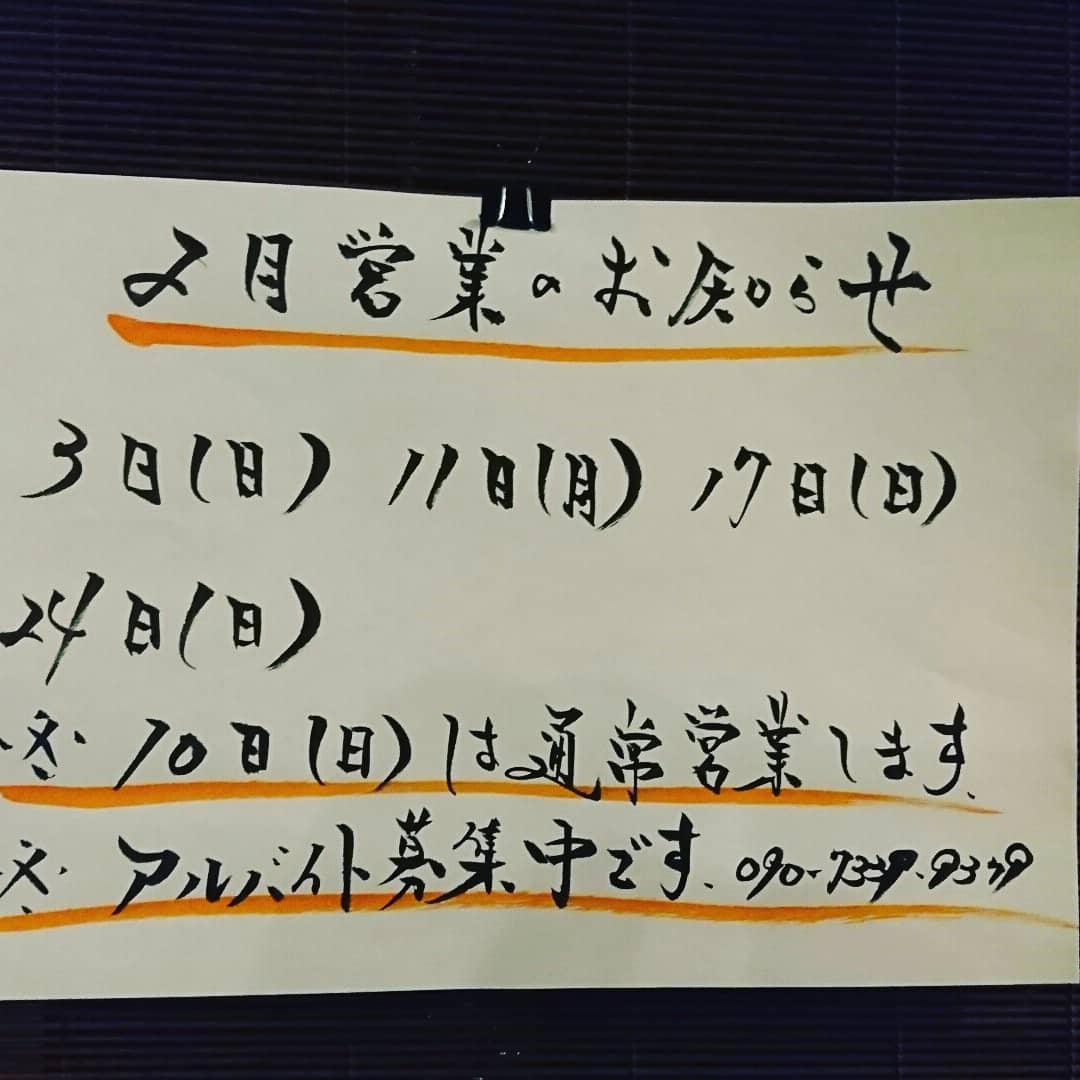 2月営業のお知らせ
3日(日) 11日(月) 17日(日)
24日(日)
※ 10日(日)は通常営業します。
※ アルバイト募集中です。090-7339-9379